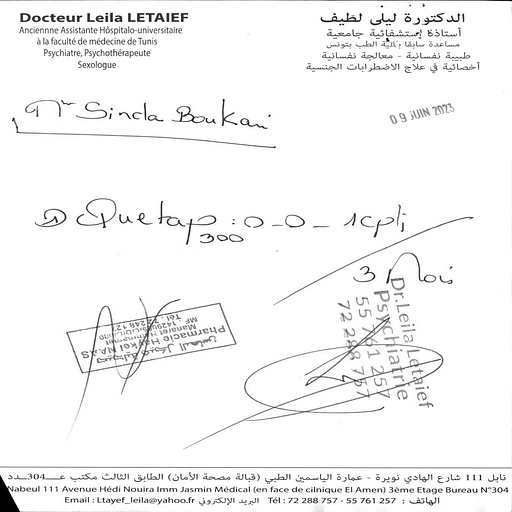 Docteur Leila LETAIEF
Anciennne Assistante Hôspitalo-universitaire
à la faculté de médecine de Tunis
Psychiatre, Psychothérapeute
Sexologue
الدكتورة ليلى لطيف
أستاذة إستشفائية جامعية
مساعدة سابقا بكلية الطب بتونس
طبيبة نفسانية - معالجة نفسانية
أخصائية في علاج الاضطرابات الجنسية
09 JUIN 2023
Mr Sincla Boukari
1) Quetap : 0_0_ 1cp/j
300
3 Mois
Dr.Leila Letaief
Psychiatrie
55 761 257
72 288 757
Pharmacie Haykel NAAS
نابل 111 شارع الهادي نويرة - عمارة الياسمين الطبي (قبالة مصحة الأمان) الطابق الثالث مكتب عـــ304ــدد
Nabeul 111 Avenue Hédi Nouira Imm Jasmin Médical (en face de cilnique El Amen) 3ème Etage Bureau N°304
Email : Ltayef_leila@yahoo.fr البريد الإلكتروني Tél : 72 288 757 - 55 761 257 : الهاتف